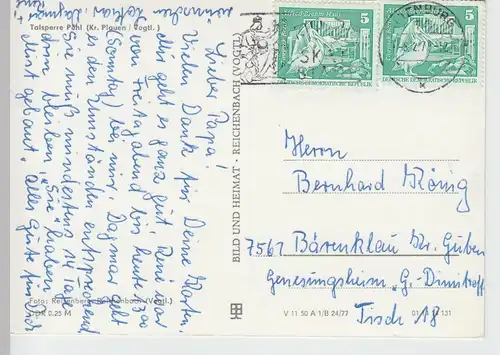 Talsperre Pöhl (Kr. Plauen / Vogtl.)
Lieber Papa!
Vielen Dank für Deine Karten.
Mir geht es ganz gut. Reni war
von Freitagabend bis heute
(Sonntag) bei mir. Dagmar geht
es den Umständen entsprechend
sie muß mindestens 14 Tage
drin bleiben. Sie haben
nicht gebaut. Alles Gute für Dich
wünschen
Foto: Reichenbach (Vogtl.)
DDR 0.25 M
BILD UND HEIMAT · REICHENBACH (VOGTL.)
V 11 50 A 1/B 24/77
131
5
5
DEUTSCHE DEMOKRATISCHE REPUBLIK
DEUTSCHE DEMOKRATISCHE REPUBLIK
Herrn
Bernhard König
7561 Bärenklau Kr. Guben
Genesungsheim „G.-Dimitroff
Tisch 18